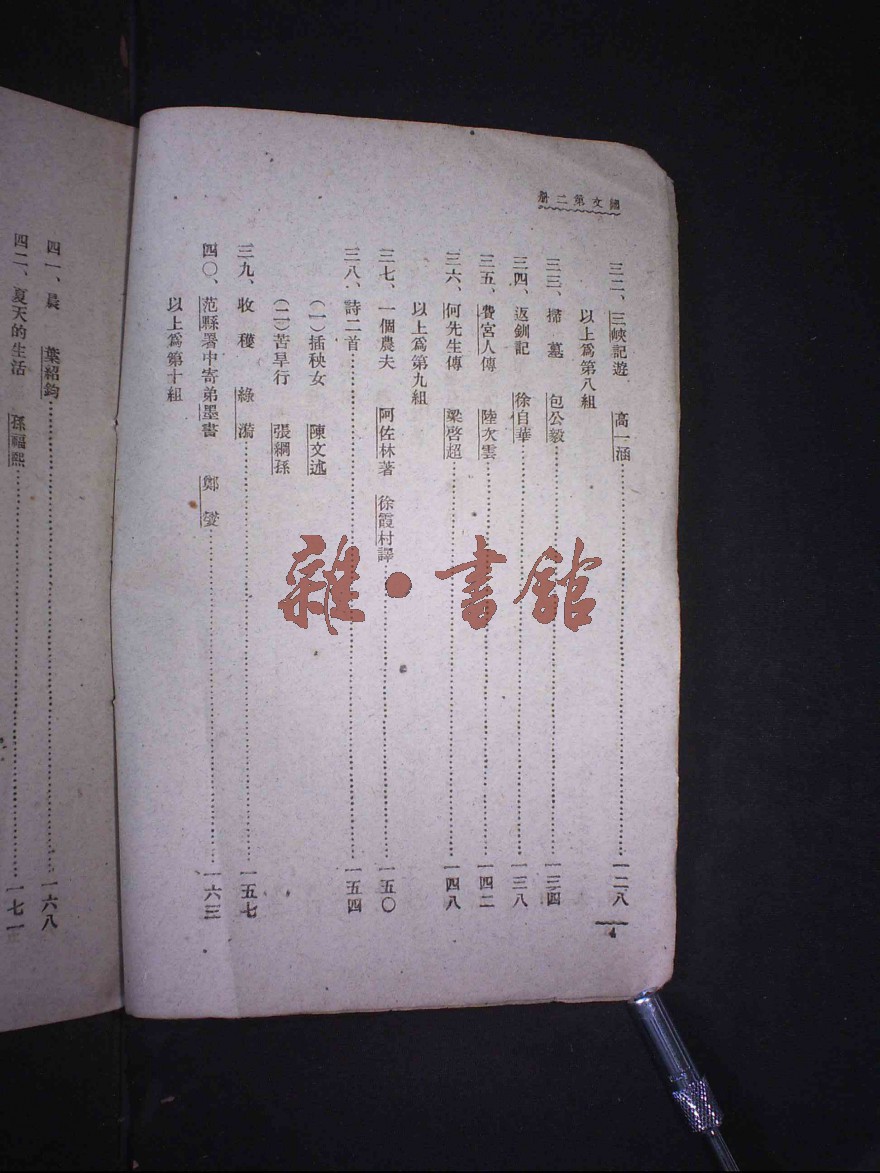 國文第二册
三二、三峽記遊　高一涵……一二八
以上爲第八組
三三、掃　墓　包公毅……一三四
三四、返釧記　徐自華……一三八
三五、費宮人傳　陸次雲……一四二
三六、何先生傳　梁啓超……一四八
以上爲第九組
三七、一個農夫　阿佐林著　徐霞村譯……一五〇
三八、詩二首……一五四
（一）插秧女　陳文述
（二）苦旱行　張綱孫
三九、收　穫　綠　漪……一五七
四〇、范縣署中寄弟墨書　鄭　燮……一六三
以上爲第十組
4
四一、晨　葉紹鈞……一六八
四二、夏天的生活　孫福熙……一七一
雜·書館